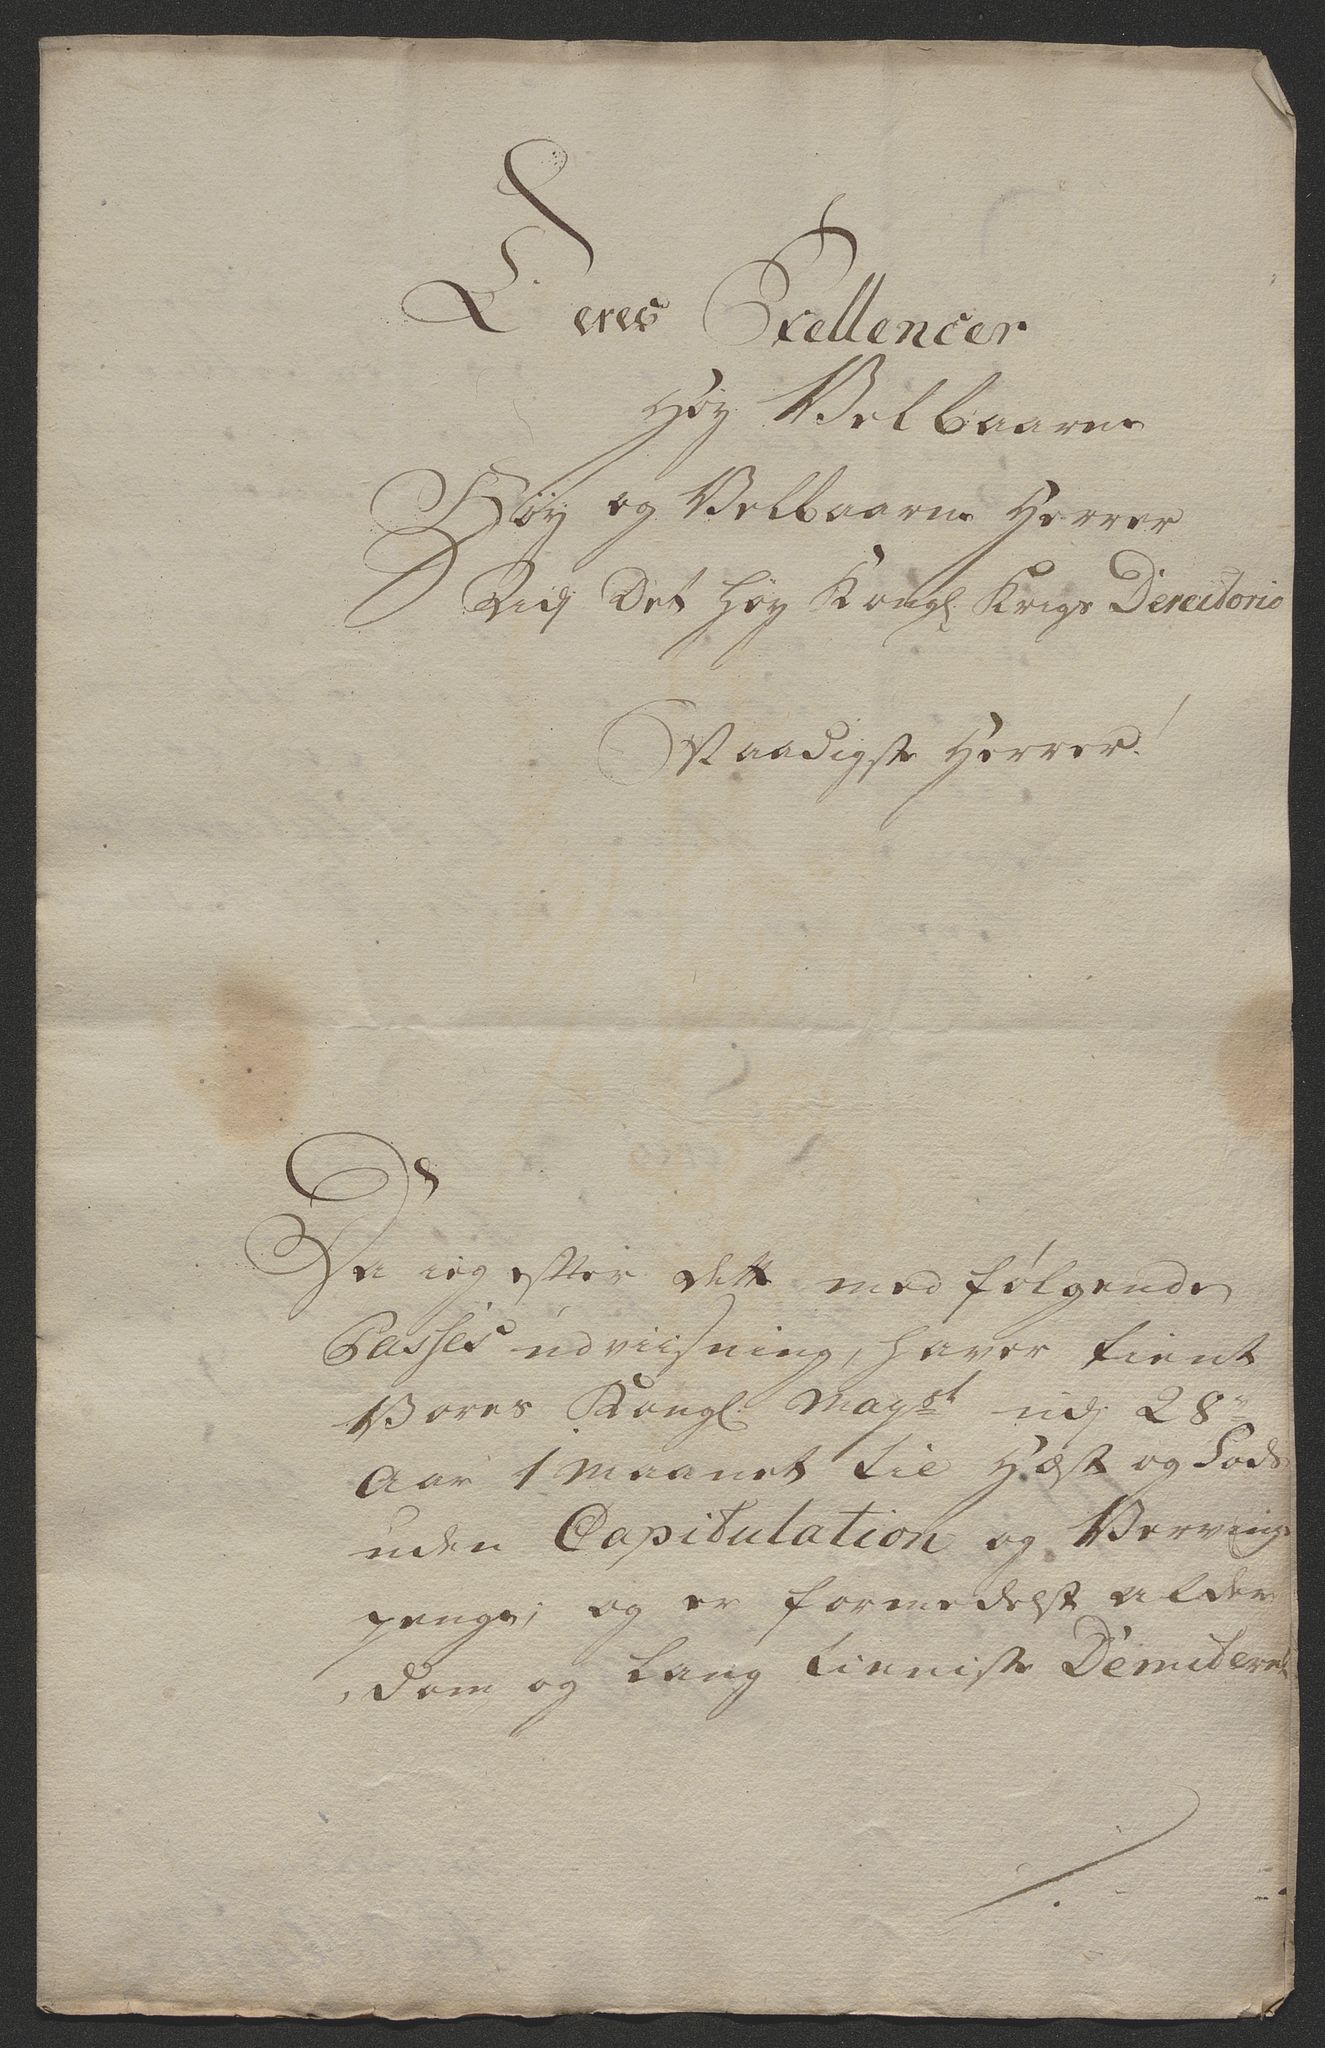 Deres Exellencer
Høy Velbaarne
Høy og Velbaarne Herrer
Vid Det høy Kongl. Krigs Dirextorio
Naadigste Herrer!
Da ieg efter dette med følgende
Passes udviisning, haver tient
Vores Kongl. Mayst. udj 28
Aar 1 Maanet til Hæst og Fods
uden Capitulation og Verving
penge; og er formedelst alder
dom og lang tienniste Demiteret